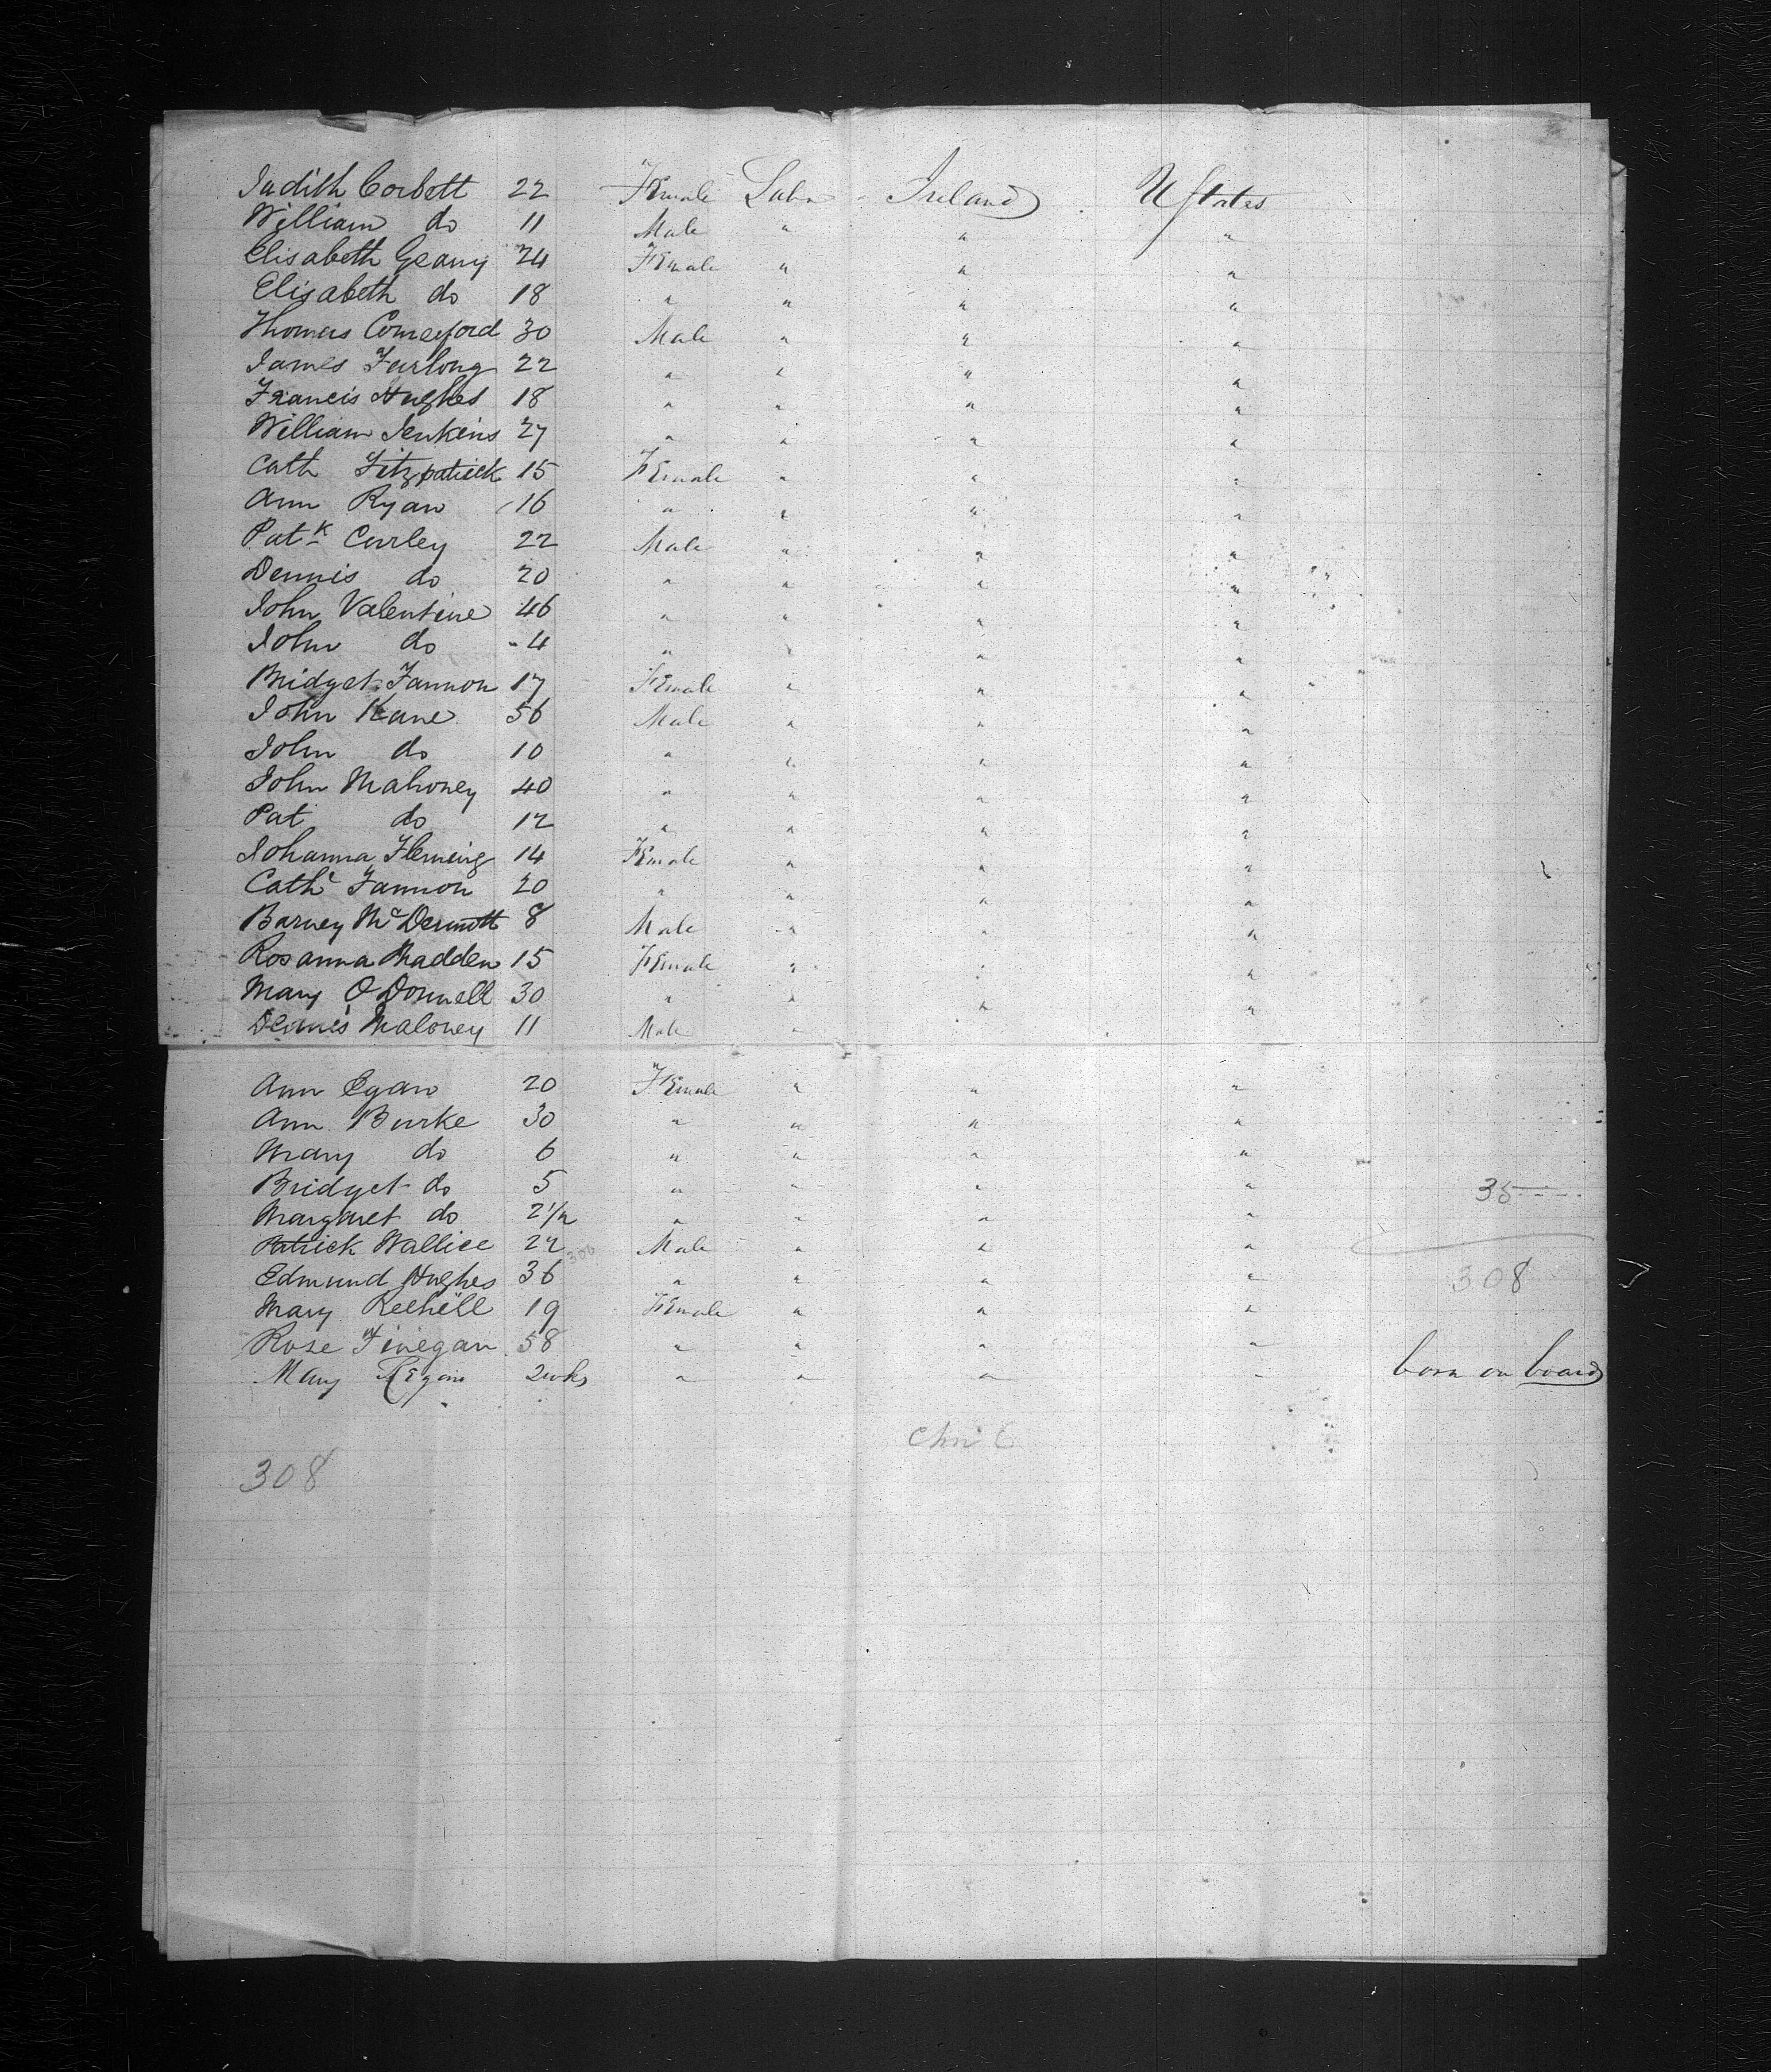 Judith Corbett 22 Female Labr Ireland U States
William do 11 Male " " "
Elisabeth Geany 24 Female " " "
Elisabeth do 18 " " " "
Thomas Comerford 30 Male " " "
James Furlong 22 " " " "
Francis Hughes 18 " " " "
William Jenkins 27 " " " "
Cath Fitzpatrick 15 Female " " "
Ann Ryan 16 " " " "
Patk Curley 22 Male " " "
Dennis do 20 " " " "
John Valentine 46 " " " "
John do 4 " " " "
Bridget Fannon 17 Female " " "
John Kane 56 Male " " "
John do 10 " " " "
John Mahoney 40 " " " "
Pat do 12 " " " "
Johanna Fleming 14 Female " " "
Cathe Fannon 20 " " " "
Barney McDermott 8 Male " " "
Rosanna Madden 15 Female " " "
Mary O'Donnell 30 " " " "
Dennis Maloney 11 Male "
Ann Egan 20 Female " " "
Ann Burke 30 " " " "
Mary do 6 " " " "
Bridget do 5 " " " " 35
Margaret do 2 1/2 " " " "
Patrick Wallice 22 300 Male " " "
Edmund Hughes 36 " " " " 308
Mary 19 Female " " "
Rose Finegan 58 " " " "
Mary Egan 2wks " " " " born on board
308